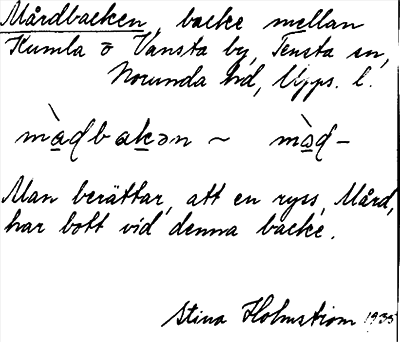 Mårdbacken, backe mellan
Kumla o Vansta by, Tensta sn,
Norunda hd, Upps. l.
màdbakən ~ mòd-
Man berättar, att en ryss, Mård,
har bott vid denna backe.
Stina Holmström 1935